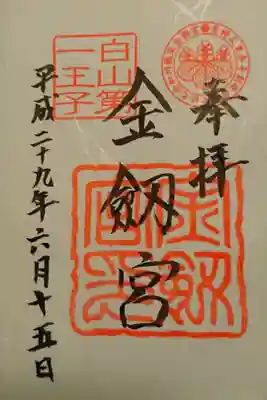 奉拝
金劔宮
白山第
一王子
平成二十九年六月十五日